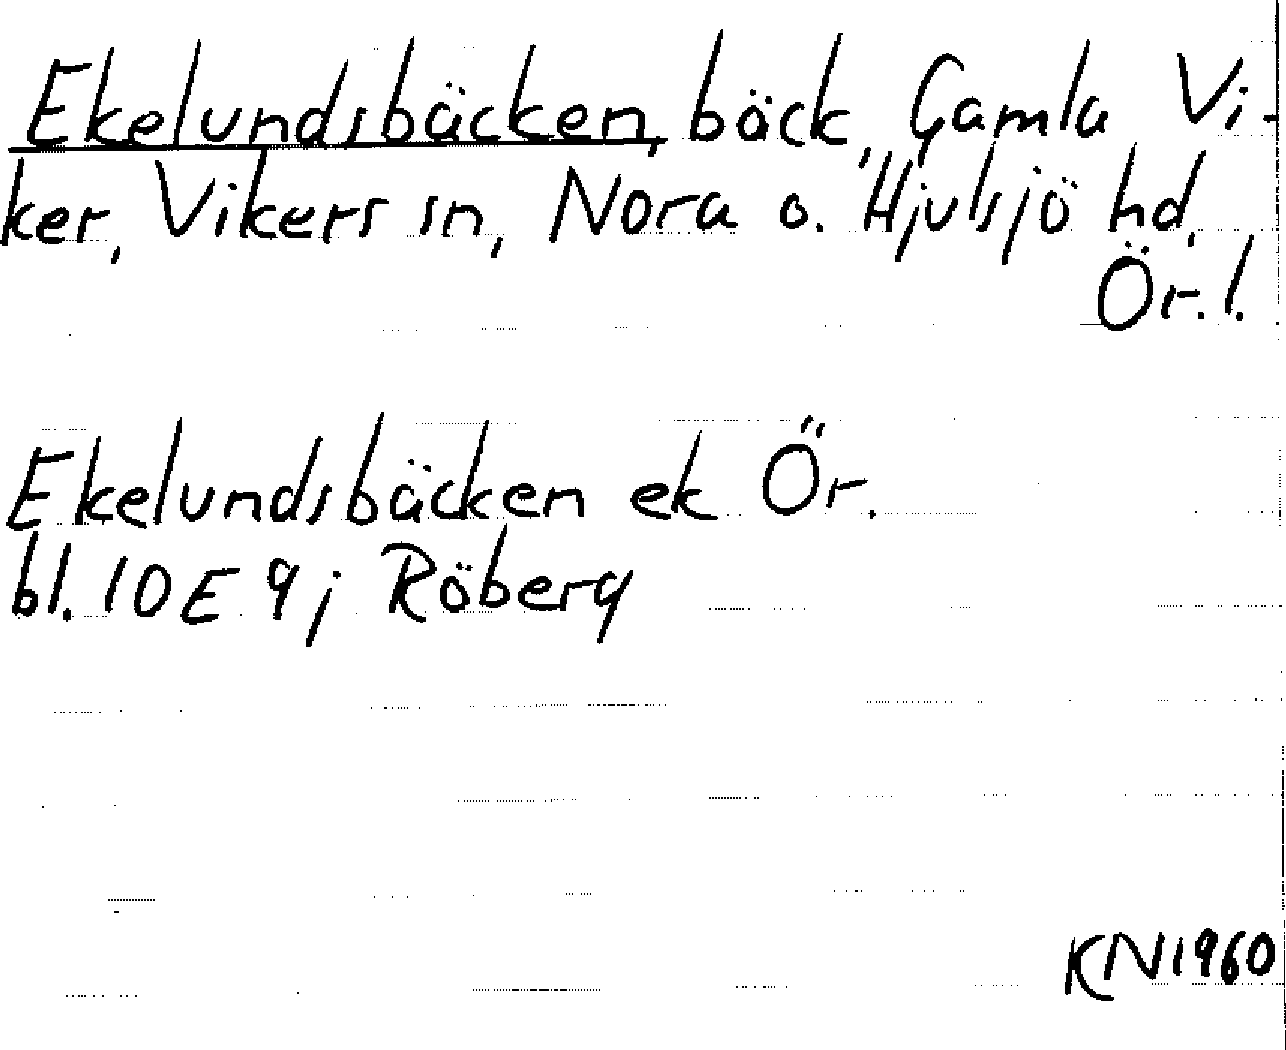 Ekelundsbäcken, bäck, Gamla Vi-
ker, Vikers sn, Nora o. Hjulsjö hd,
Ör. l.
Ekelundsbäcken ek Ör.
bl. 10E 9j Röberg
KN1960